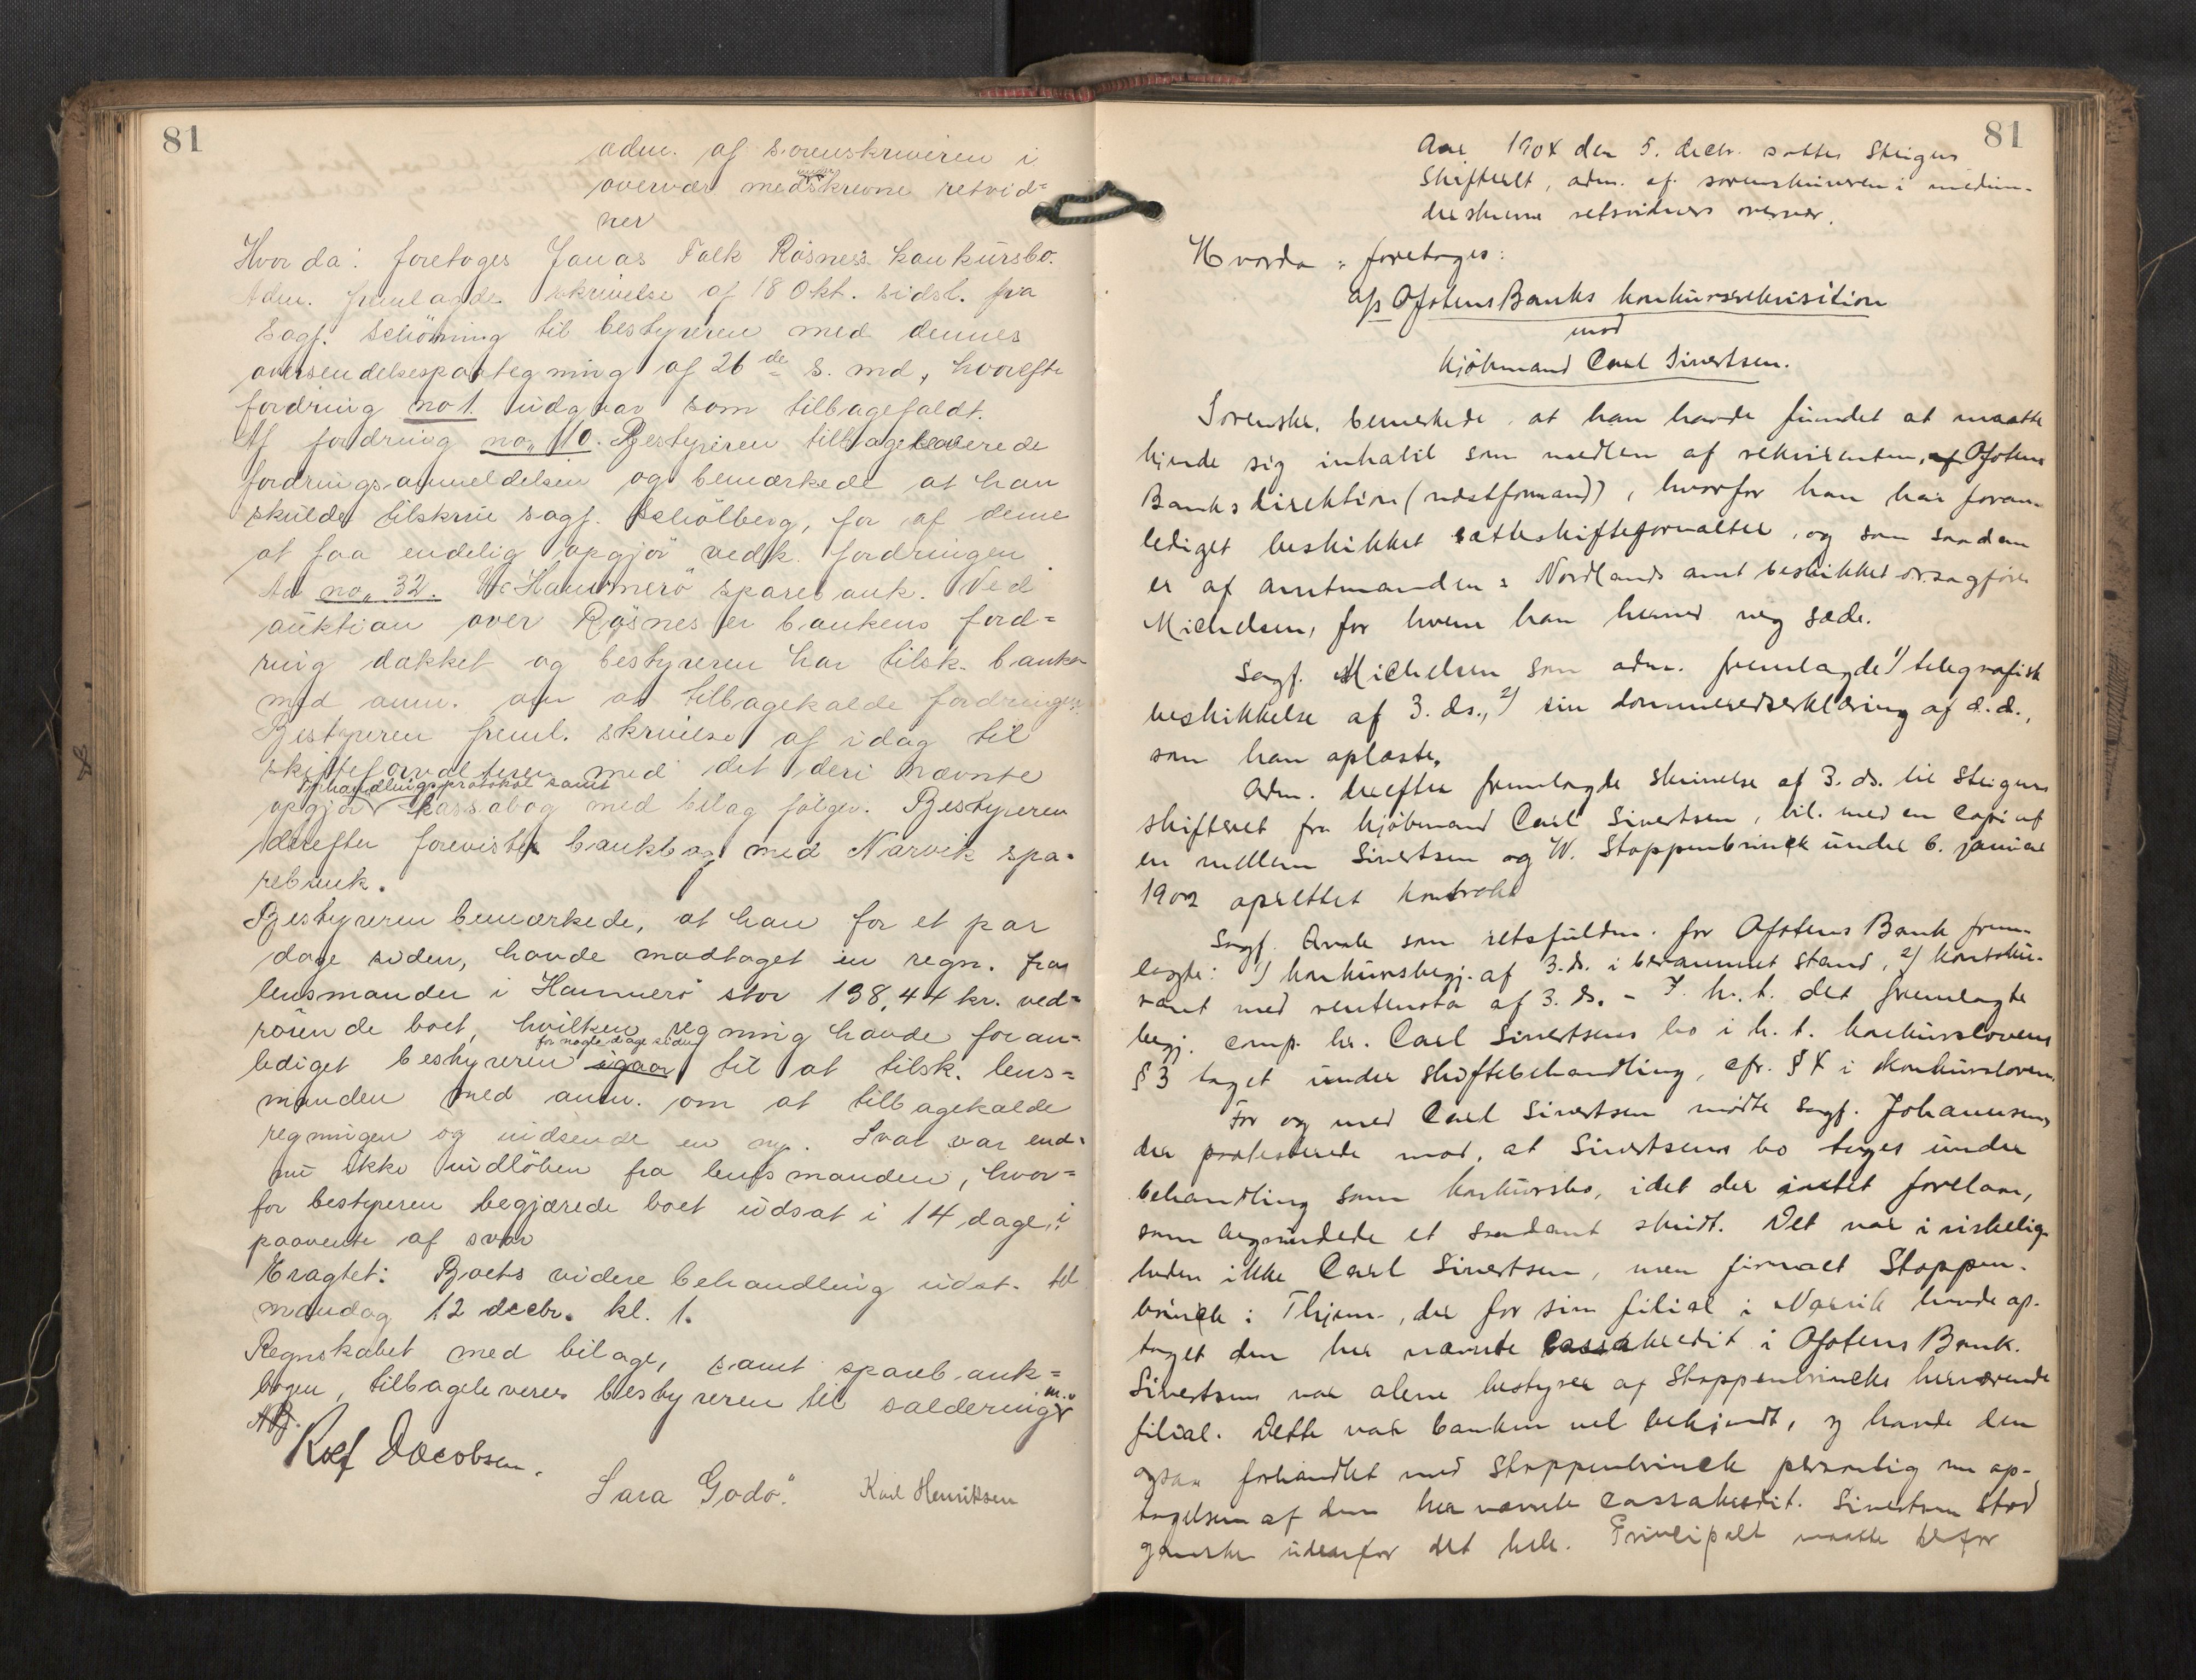 81
adm. af sorenskriveren i
overvær medunderskrevne retvid=
ner
Hvor da: foretoges Jonas Falk Røsnes's konkursbo.
Adm. fremlagde skrivelse af 18 Okt. sidstl. fra
Sagf. Schöning til bestyreren med dennes
oversendelsespaategning af 26de s. md, hvorefter
fordring no 1 udgaar som tilbagekaldt.
Af fordring no. 110. Bestyreren tilbageleverede
fordringsanmeldelsen og bemærkede at han
skulde tilskrive sagf. Schiölberg, for af denne
at faa endelig opgjör vedk. fordringen.
Ad no. 32. Hammerö sparebank. Ved
auktion over Røsnes er bankens ford=
ring dækket og bestyreren har tilsk. banken
med anm. om at tilbagekalde fordringen.
Bestyreren freml. skrivelse af idag til
skifteforvalteren med det deri nævnte
forhandlingsprotokol samt
opgjör kassabog med bilag fölger. Bestyreren
derefter foreviste bankbog med Narvik spa=
rebank.
Bestyreren bemærkede, at han for et par
dage siden, havde modtaget en regn. fra
lensmanden i Hammerö stor 138,44 kr. ved=
rörende boet, hvilken regning havde foran=
for nogle dage siden
lediget bestyreren igaar til at tilsk. lens=
manden med anm. om at tilbagekalde
regningen og indsende en ny. Svar var end=
nu ikke indlöben fra lensmanden, hvor=
for bestyreren begjærede boet udsat i 14 dage, i
paavente af svar
Eragtet: Boets videre behandling udst. til
mandag 12 decbr. kl. 1.
Regnskabet med bilage, samt sparebank=
bogen, tilbageleveres bestyreren til saldering m.v
Rolf Jacobsen.
Sara Godö. Karl Henriksen
81
Aar 1904 den 5. decbr. sattes Steigens
Skifteret, adm. af sorenskriveren i medun-
derskrevne retsvidners overvær.
Hvorda: foretoges:
a/s Ofotens Banks konkursrekvisition
mod
kjöbmand Carl Sivertsen.
Sorenskr. bemerkede, at han havde fundet at maatte
kjende sig inhabil som medlem af rekvirenten, af Ofotens
Banks direktion (næstformand), hvorfor han har foran-
lediget beskikket sætteskifteforvalter, og som saadan
er af amtmanden i Nordlands amt beskikket o.r.sagförer
Michelsen, for hvem han herved veg sæde.
Sagf. Michelsen som adm. fremlagde 1) telegrafisk
beskikkelse af 3. ds., 2) sin dommeredserklæring af d.d.,
som han oplæste.
Adm. derefter fremlagde skrivelse af 3. ds. til Steigens
skifteret fra kjöbmand Carl Sivertsen, bil. med en Copi af
en mellem Sivertsen og W. Stoppenbrinck under 6. januar
1902 oprettet kontrakt
Sagf. Qvale som retsfuldm. for Ofotens Bank frem-
lagde: 1) konkursbegj. af 3. ds. i berammet stand, 2) kontoku-
rant med rentenota af 3. ds. - I h. t. det fremlagte
begj. comp. hr. Carl Sivertsens bo i h. t. konkurslovens
§ 3 taget under skiftebehandling, cfr. § 4 i konkursloven.
For og med Carl Sivertsen mödte sagf. Johannsen,
der protesterede mod, at Sivertsens bo toges under
behandling som konkursbo, idet der intet forelaa,
som begrundede et saadant skridt. Det var i virkelig-
heden ikke Carl Sivertsen, men firmaet Stoppen-
brinck i Thjem, der for sin filial i Narvik havde op-
taget den her nævnte Cassakredit i Ofotens Bank.
Sivertsen var alene bestyrer af Stoppenbrincks herværende
filial. Dette var banken vel bekjendt, og havde den
ogsaa forhandlet med Stoppenbrinck personlig om op-
tagelsen af den her nævnte cassakredit. Sivertsen stod
ganske udenfor det hele. Principalt maatte derfor